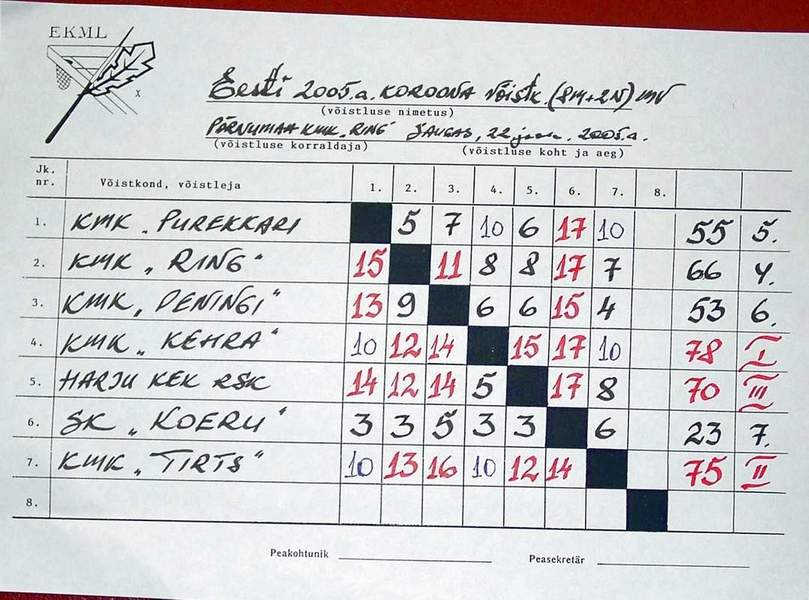 EKML
Eesti 2005.a. KOROONA VÕISTK. (8M+2N) MV
(võistluse nimetus)
PÄRNUMAA KMK „RING" SAUGAS, 22 jaan. 2005.a.
(võistluse korraldaja) (võistluse koht ja aeg)
Jk. nr. Võistkond, võistleja 1. 2. 3. 4. 5. 6. 7. 8.
1. KMK „PUREKKARI 5 7 10 6 17 10 55 5.
2. KMK „RING" 15 11 8 8 17 7 66 4.
3. KMK „PENINGI" 13 9 6 6 15 4 53 6.
4. KMK „KEHRA" 10 12 14 15 17 10 78 I
5. HARJU KEK RSK 14 12 14 5 17 8 70 III
6. SK „KOERU" 3 3 5 3 3 6 23 7.
7. KMK „TIRTS" 10 13 16 10 12 14 75 II
8.
Peakohtunik Peasekretär